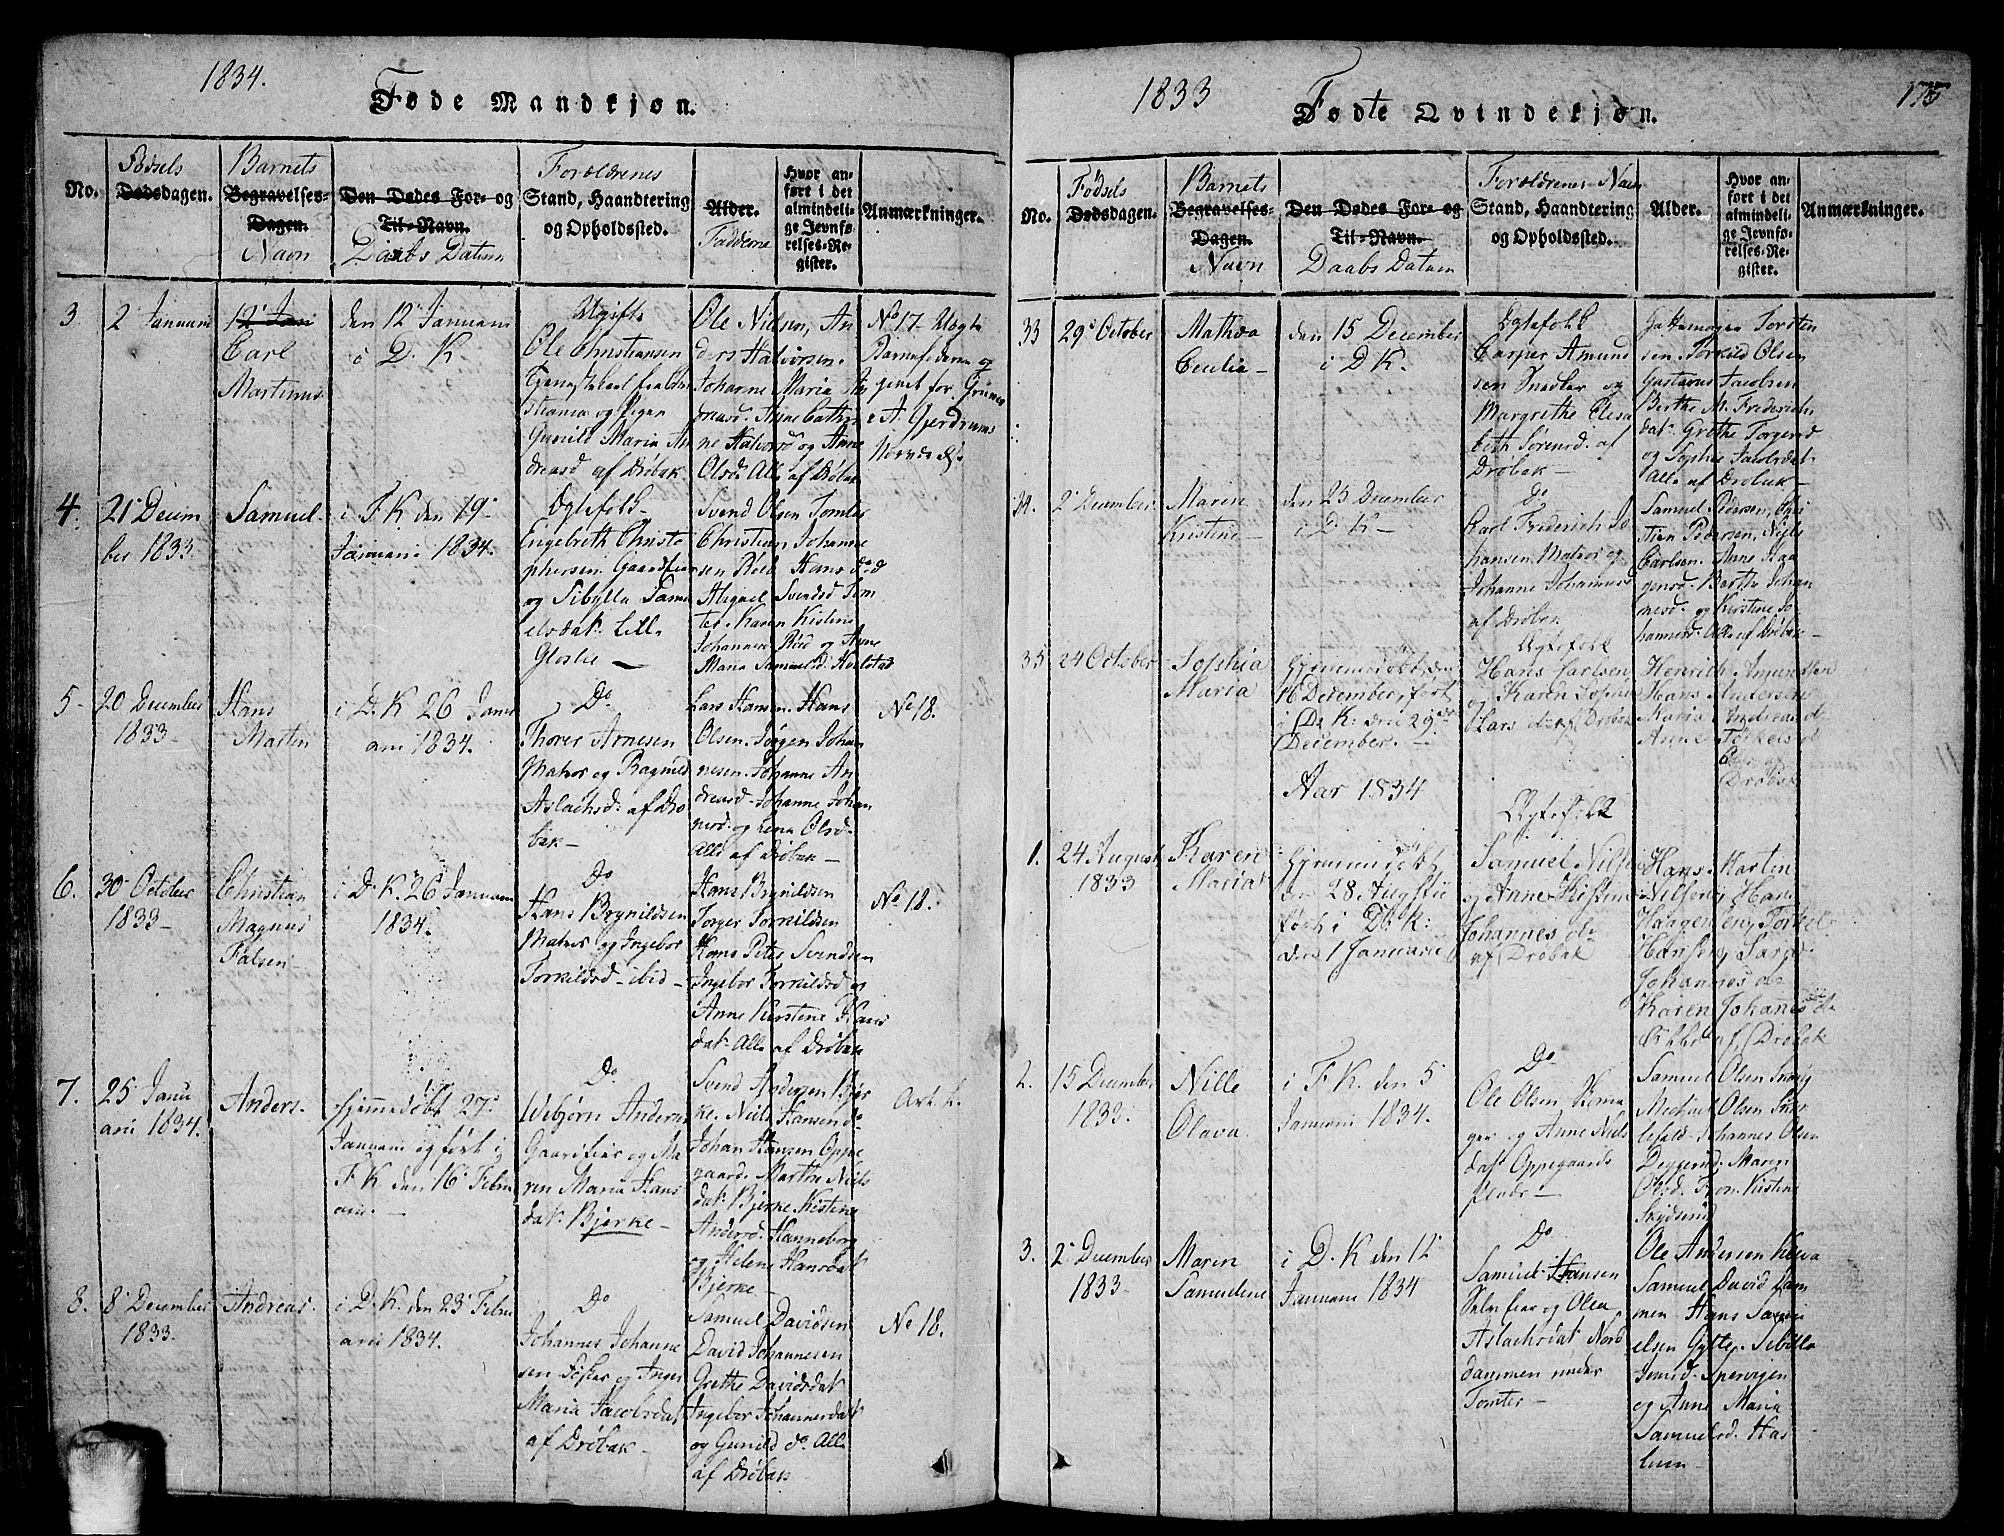 1834.
Føde Mandkjøn.
No.
Fødsels
Dødsdagen.
Barnets
Begravelses-
Dagen.
Navn
Den Dødes For- og
Til-Navn.
Daabs Datum
Forældrenes
Stand, Haandtering
og Opholdssted.
Alder.
Fadderne
Hvor an-
ført i det
almindeli-
ge Jevnfø-
relses-Re-
gister.
Anmærkninger.
3
2 Januari
12 Jan
Carl
Martinus
den 12 Januari
i D. K
Ugift
Ole Christiansen
og Pigen
Gunild Maria An
dreasd af Drøbak
Ole Nielsen, An
ders Halvorsen.
Johanne Maria An
dreasd. Anne Cathri
ne Halvorsd og Anne
Olsd. Alle af Drøbak
No 17. Uægte
Barnefaderen
4.
21 Decem
ber 1833.
Samuel
i F K den 19
Januari 1834.
Ægtefolk
Engebreth Christo
phersen Gaardfeier
og Sibylla Samu
elsdat: Lill
Glosli
Svend Olsen Tomter
Christian Johanne
sen Røed Hans do
Svendsd Tom
ter. Karen Kistine
Johannesd Røed og Anne
Maria Samuelsd:
5
20 December
1833
Hans
Martin
i D. K 26 Janu
ari 1834.
Do
Thorer Arnesen
Matros og Ragnild
Aslachsd: af Drø
bak
Lars Hansen. Hans
Olsen. Jørgen Johan
nesen. Johanne An
dreasd. Johanne Johan
nesd. og Lena Olsd.
Alle af Drøbak
No 18.
6.
30 October
1833
Christian
Magnus
Falsen
i D. K. 26 Januari
1834.
Do
Hans Brynildsen
Matros og Ingebor
Torkildsd ibid
Hans Brynildsen
Torger Torkildsen
Hans Peter Svendsen
Ingebor Torkildsd og
Anne Kirstine Hans
dat. Alle af Drøbak
No 18.
7.
25 Janu
ari 1834.
Anders.
Hjemmedøbt 27
Januari og ført i
F K. den 16 Febru
ari.
Do
Vebjørn Anders
Gaardfeier og Ma
ren Maria Hans
dat. Bjerke
Svend Andersen Bjer
ke. Niels Hansen do
Johan Hansen Oppe
gaard. Marthe Niels
dat. Bjerke Kistine
Andersd. Hanneborg
og Helene Hansdat
Bjerke
Art. t.
8.
8 December
1833.
Andreas.
i D. K. den 23 Febru
ari 1834.
Do
Johannes Johanne
sen Fisker og Inger
Maria Jacobsdat
af Drøbak
Samuel Davidsen
David Johannesen
Grethe Davidsdat
Ingebor Johannesdat
og Gunild do. Alle
af Drøbak
No 18.
1833
Fødte Qvindekjøn.
175
No.
Fødsels
Dødsdagen.
Barnets
Begravelses-
Dagen.
Navn
Den Dødes For- og
Til-Navn.
Daabs Datum
Forældrenes Navn
Stand, Haandtering
og Opholdssted.
Alder.
Hvor an-
ført i det
almindeli-
ge Jevnfø-
relses-Re-
gister.
Anmærkninger.
33
29 October
Mathea
Cecilie
den 15 December
i D K.
Ægtefolk
Casper Amund
sen Snedker og
Margrethe Elisa
beth Sørensd. af
Drøbak
Torsten
sen. Torkild Olsen
Gustavus Jacobsen
Berthe M. Frederich
dat. Grethe Torgersd
og Sophie Jacobsdat.
Alle af Drøbak
34.
2 December
Maren
Kristine
den 23 December
i D K
Do
Carl Frederich Jo
hansen Matros og
Johanne Johannesd
af Drøbak
Samuel Pedersen, Chri
stian Pedersen, Niels
Carlsen. Anne Haa
gensd. Berthe Johan
nesd. og Kirstine Jo
hannesd. Alle af Drøbak
35
24 October
Sophia
Maria
Hjemmedøbt den
16 December, ført
i D. K: den 29de
December.
Ægtefolk
Hans Carlsen
og Karen Sophie
Lars dat af Drøbak
Henrich Amundsen
Hans Andersen
Maria Andreas d
Anne Torkels d
af
Drøbak
Aar 1834
1.
24 August
1833
Karen
Maria
Hjemmedøbt
den 28 Augustii
ført i D. K:
den 1 Januarii
Ægtefolk
Samuel Nilsen
og Anne Kistine
Johannes da
af Drøbak
Hans Martin
Nilsen, Han
Haagensen, Torkel
Hansen,
Johannes da
Karen Johannes da
af Drøbak
2.
15 December
1833.
Nille
Olava.
i F. K. den 5
Januari 1834.
Do
Ole Olsen Skoma
ger og Anne Niels
dat Oppegaards
Plads
Samuel Olsen
Michael Olsen
Johannes Olsen
Deggerud. Maren
Olsd. Kistine
3.
2 December
1833.
Maren
Samueline
i D. K den 12
Januari 1834
Do
Samuel Hansen
Selveier og Olea
Aslachsdat Nord
dammen under
Tomter
Ole Andersen
Samuel David Dam
men Hans Samu
elsen Sibilla
Spervigen
og Anne Maria
Samuelsd. Has
lum